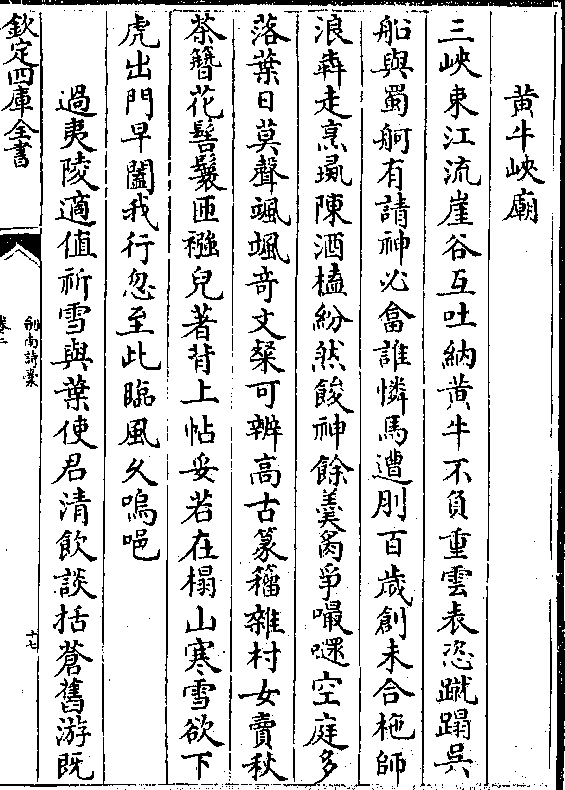 黄牛峽廟
三峽束江流崖谷互吐納黄牛不負重雲表恣蹴蹋吳
船與蜀舸有請神必畣誰憐馬遭刖百歲創未合柂師
浪奔走烹彘陳酒榼紛然餕神餘羹胾爭嘬𠴲空庭多
落葉日莫聲颯颯竒文粲可辨高古篆籀雜村女賣秋
茶簪花髻鬟匝襁兒著背上帖妥若在榻山寒雪欲下
虎出門早闔我行忽至此臨風乆嗚唈
過夷陵適值祈雪與葉使君清飲談括蒼舊游既
欽定四庫全書
劍南詩藁
卷二
十七